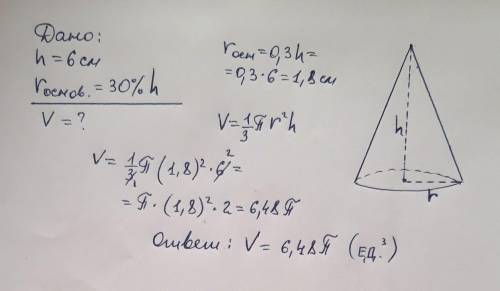 Дано:
h = 6 см
rоснов. = 30% h
V = ?
rосн = 0,3h =
= 0,3 · 6 = 1,8 см
V = 1/3 π r² h
V = 1/3 π (1,8)² · 6 =
1 2
= π · (1,8)² · 2 = 6,48 π
Ответ: V = 6,48 π (ед.³)
h
r